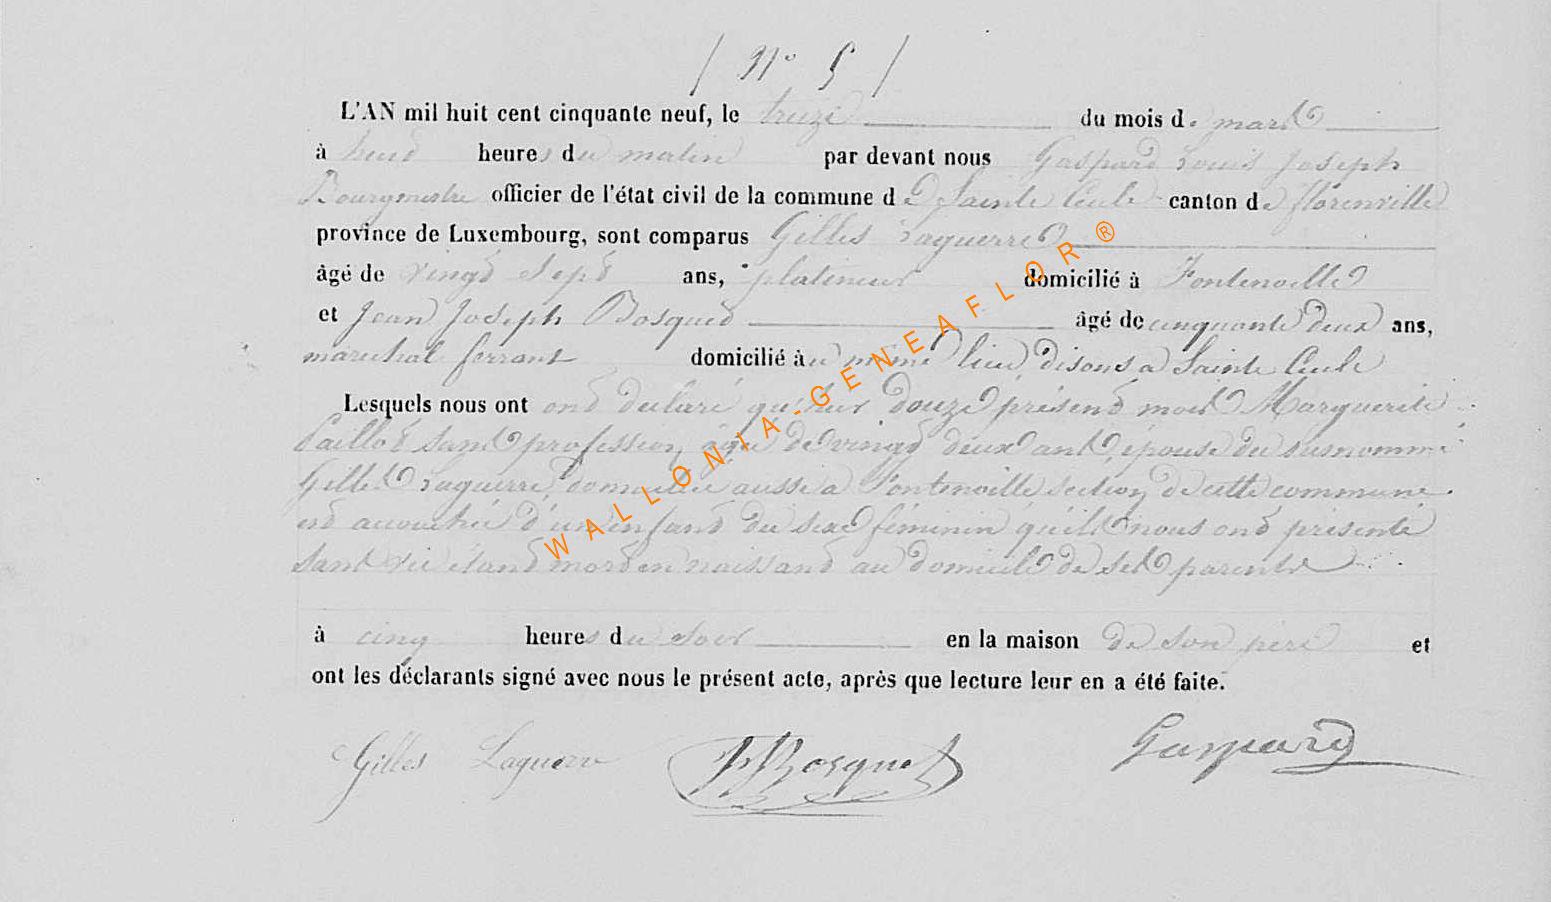 / N° 5 /
L'AN mil huit cent cinquante neuf, le treize du mois de mars
à huit heures du matin par devant nous Gaspard Louis Joseph
Bourgmestre officier de l'état civil de la commune de Sainte Cecile canton de florenville
province de Luxembourg, sont comparus Gilles Laguerre
âgé de vingt sept ans, platineur domicilié à Fontenoille
et Jean Joseph Bosquet âgé de cinquante deux ans,
marechal ferrant domicilié au même lieu, disons a Sainte Cecile
Lesquels nous ont ont déclaré qu'hier douze présent mois Marguerite
sans profession, âgée de vingt deux ans, épouse du susnommé
Gilles Laguerre, domiciliée aussi a Fontenoille section de cette commune
est accouchée d'un enfant du sexe féminin qu'ils nous ont présenté
sans vie étant mort en naissant au domicile de ses parents
à cinq heures du soir en la maison de son père et
ont les déclarants signé avec nous le présent acte, après que lecture leur en a été faite.
Gilles Laguerre Bosquet Gaspard
WALLONIA-GENEAFLOR®